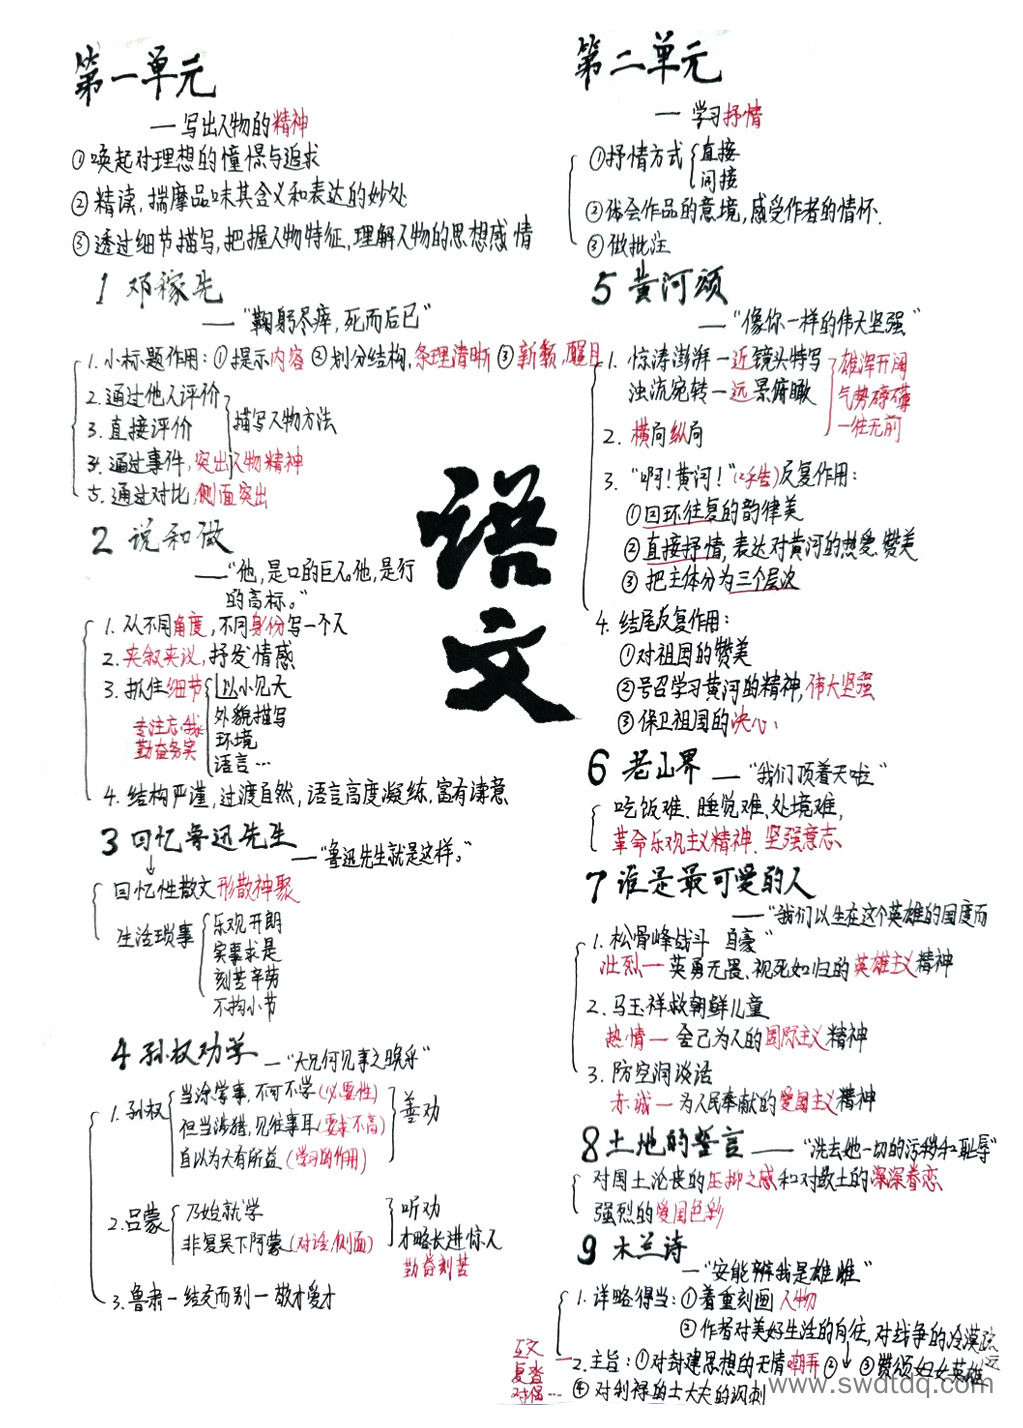 第一单元
— 写出人物的精神
①唤起对理想的憧憬与追求
②精读,揣摩品味其含义和表达的妙处
③透过细节描写,把握人物特征,理解人物的思想感情
1 邓稼先
——“鞠躬尽瘁,死而后已”
1.小标题作用:①提示内容 ②划分结构,条理清晰 ③新颖,醒目
2.通过他人评价
3.直接评价
描写人物方法
4.通过事件,突出人物精神
5.通过对比,侧面突出
2 说和做
——“他,是口的巨人。他,是行
的高标。”
1.从不同角度,不同身份写一个人
2.夹叙夹议,抒发情感
3.抓住细节
以小见大
外貌描写
环境
语言…
专注忘我
勤奋务实
4.结构严谨,过渡自然,语言高度凝练,富有诗意
3 回忆鲁迅先生
——“鲁迅先生就是这样。”
回忆性散文 形散神聚
生活琐事
乐观开朗
实事求是
刻苦辛劳
不拘小节
4 孙权劝学
——“大兄何见事之晚乎”
1.孙权
当涂掌事,不可不学(必要性)
但当涉猎,见往事耳(要求不高)
自以为大有所益(学习的作用)
善劝
2.吕蒙
乃始就学
非复吴下阿蒙(对话,侧面)
听劝
才略长进惊人
勤奋刻苦
3.鲁肃—结友而别—敬才爱才
语
文
第二单元
— 学习抒情
①抒情方式
直接
间接
②体会作品的意境,感受作者的情怀.
③做批注
5 黄河颂
——“像你一样的伟大坚强”
1.惊涛澎湃—近镜头特写
浊流宛转—远景俯瞰
雄浑开阔
气势磅礴
一往无前
2.横向纵向
3.“啊!黄河!”反复作用:
①回环往复的韵律美
②直接抒情,表达对黄河的热爱.赞美
③把主体分为三个层次
4.结尾反复作用:
①对祖国的赞美
②号召学习黄河的精神,伟大坚强
③保卫祖国的决心.
6 老山界 —“我们顶着天啦”
吃饭难、睡觉难、处境难,
革命乐观主义精神、坚强意志
7 谁是最可爱的人
——“我们以生在这个英雄的国度而
自豪”
1.松骨峰战斗
壮烈—英勇无畏、视死如归的英雄主义精神
2.马玉祥救朝鲜儿童
热情—舍己为人的国际主义精神
3.防空洞谈话
赤诚—为人民奉献的爱国主义精神
8 土地的誓言 ——“洗去她一切的污秽和耻辱”
对国土沦丧的压抑之感和对故土的深深眷恋
强烈的爱国色彩
9 木兰诗
—“安能辨我是雄雌”
1.详略得当:①着重刻画人物
②作者对美好生活的向往,对战争的冷漠疏远
互文
复沓
对偶…
2.主旨:①对封建思想的无情嘲弄 ② ③赞颂妇女英雄
④对利禄的士大夫的讽刺
www.swdtdq.com